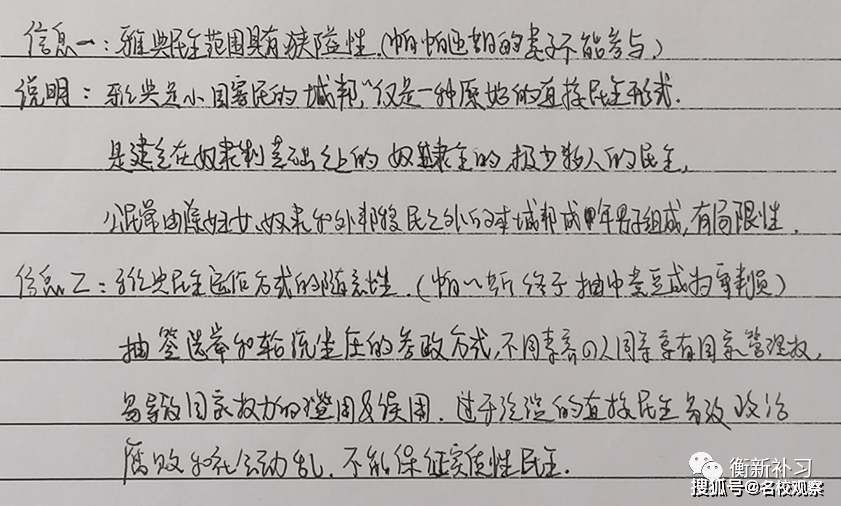 信息一：雅典民主范围具有狭隘性.(帕帕迪的妻子不能参与.)
说明：雅典是小国寡民的城邦,仅是一种原始的直接民主形式.
是建立在奴隶制基础之上的奴隶主的,极少数人的民主,
公民常由除妇女、奴隶和外邦移民之外的本城邦成年男子组成,有局限性.
信息二：雅典民主运作方式的随意性.(帕 终于抽中 豆成为审判员)
抽签选举和轮流坐庄的参政方式,不同素养の人同等享有国家管理权,
易导致国家权力的滥用&误用.过于泛滥的直接民主易致政治
腐败和社会动乱.不能保证实质性民主.
衡新补习
搜狐号@名校观察